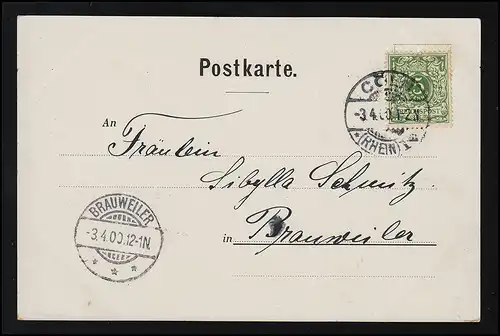 Postkarte.
CÖLN
-3.4.00.1-2N
* (RHEIN) 1 *
An
Fräulein
Sibylla Schmitz
in Brauweiler
BRAUWEILER
-3.4.00.12-1N
* * *